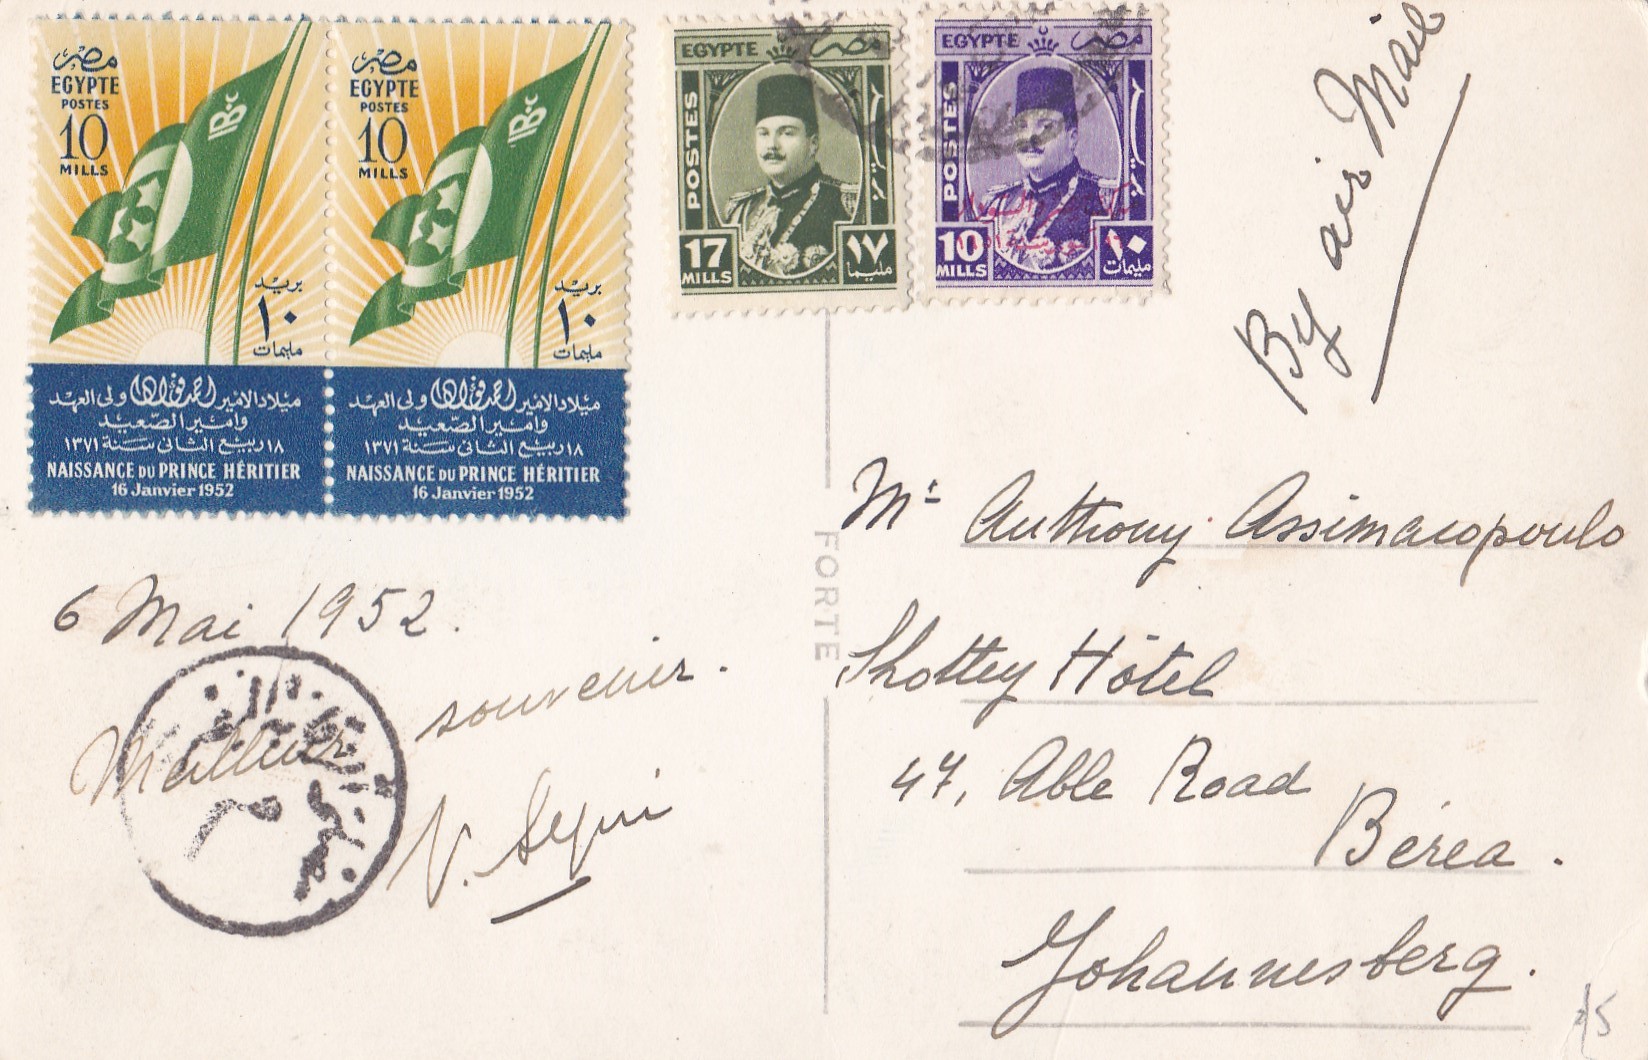 مصر
EGYPTE
POSTES
10
MILLS
بريد
١٠
مليمات
ميلاد الامير احمد فؤاد ولى العهد
وامير الصعيد
١٨ ربيع الثانى سنة ١٣٧١
NAISSANCE DU PRINCE HÉRITIER
16 Janvier 1952
مصر
EGYPTE
POSTES
10
MILLS
بريد
١٠
مليمات
ميلاد الامير احمد فؤاد ولى العهد
وامير الصعيد
١٨ ربيع الثانى سنة ١٣٧١
NAISSANCE DU PRINCE HÉRITIER
16 Janvier 1952
EGYPTE مصر
POSTES
بريد
17 ١٧
MILLS مليما
EGYPTE مصر
POSTES
بريد
ملك مصر والسودان
10 ١٠
MILLS مليمات
By air Mail
6 Mai 1952.
Meilleur souvenir.
FORTE
Mr Anthony Assimacopoulo
Shottey Hôtel
47, Able Road
Béréa.
Johannesberg.